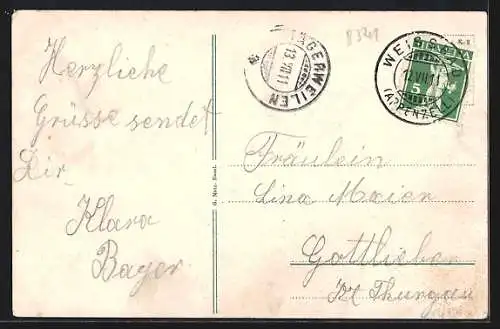 Herzliche
Grüsse sendet
Dir
Klara
Bayer
G. Metz, Basel.
8321
13.VII.11
WEISSBAD
12.VII.11
(APPENZELL)
HELVETIA
5
Fräulein
Lina Maier
Gottlieben
Kt Thurgau